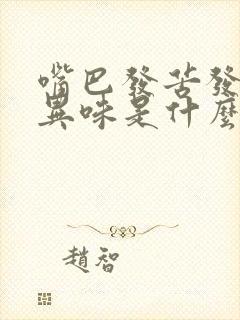 嘴巴發苦發
異味是什麼
趙智